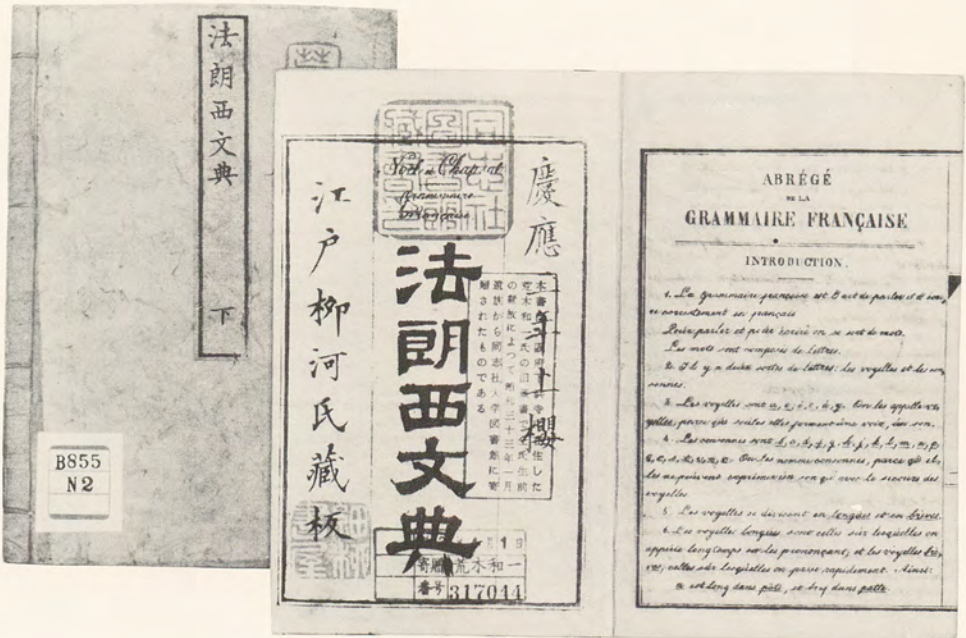 法朗西文典
下
B855
N2
慶應
年上櫻
Noël et Chapsal
Grammaire
Française
法朗西文典
江戸柳河氏藏板
荒木和一氏の旧蔵書で同氏生前
によつて昭和三十三年一月
遺族から同志社大学図書館に寄
贈されたものである
月1日
寄贈 荒木和一
番号 317044
ABRÉGÉ
DE LA
GRAMMAIRE FRANÇAISE
INTRODUCTION.
1. La Grammaire française est l'art de parler et d'écri-
re correctement en français
Pour parler et pour écrire on se sert de mots.
Les mots sont composés de lettres.
2. Il y a deux sortes de lettres: les voyelles et les con-
sonnes.
3. Les voyelles sont a, e, i, o, u, y. On les appelle vo-
yelles, parce que seules elles forment une voix, un son.
4. Les consonnes sont b, c, d, f, g, h, j, k, l, m, n, p,
q, r, s, t, v, x, z. On les nomme consonnes, parce qu'el-
les ne peuvent exprimer un son qu'avec le secours des
voyelles.
5. Les voyelles se divisent en longues et en brèves.
6. Les voyelles longues sont celles sur lesquelles on
appuie longtemps en les prononçant, et les voyelles brè-
ves, celles sur lesquelles on passe rapidement. Ainsi:
a est long dans pâte, et bref dans patte.